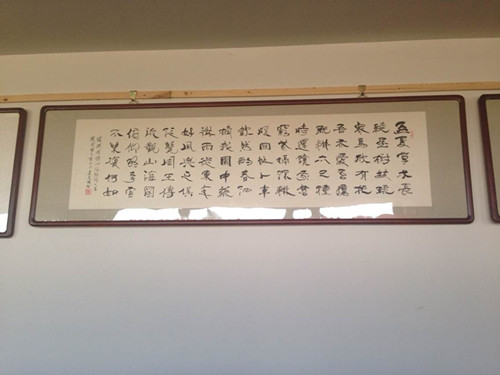 孟夏草木長
繞屋樹扶疏
衆鳥欣有托
吾亦愛吾廬
既耕亦已種
時還讀我書
窮巷隔深轍
頗回故人車
歡然酌春酒
摘我園中蔬
微雨從東來
好風與之俱
泛覽周王傳
流觀山海圖
俯仰終宇宙
不樂復何如